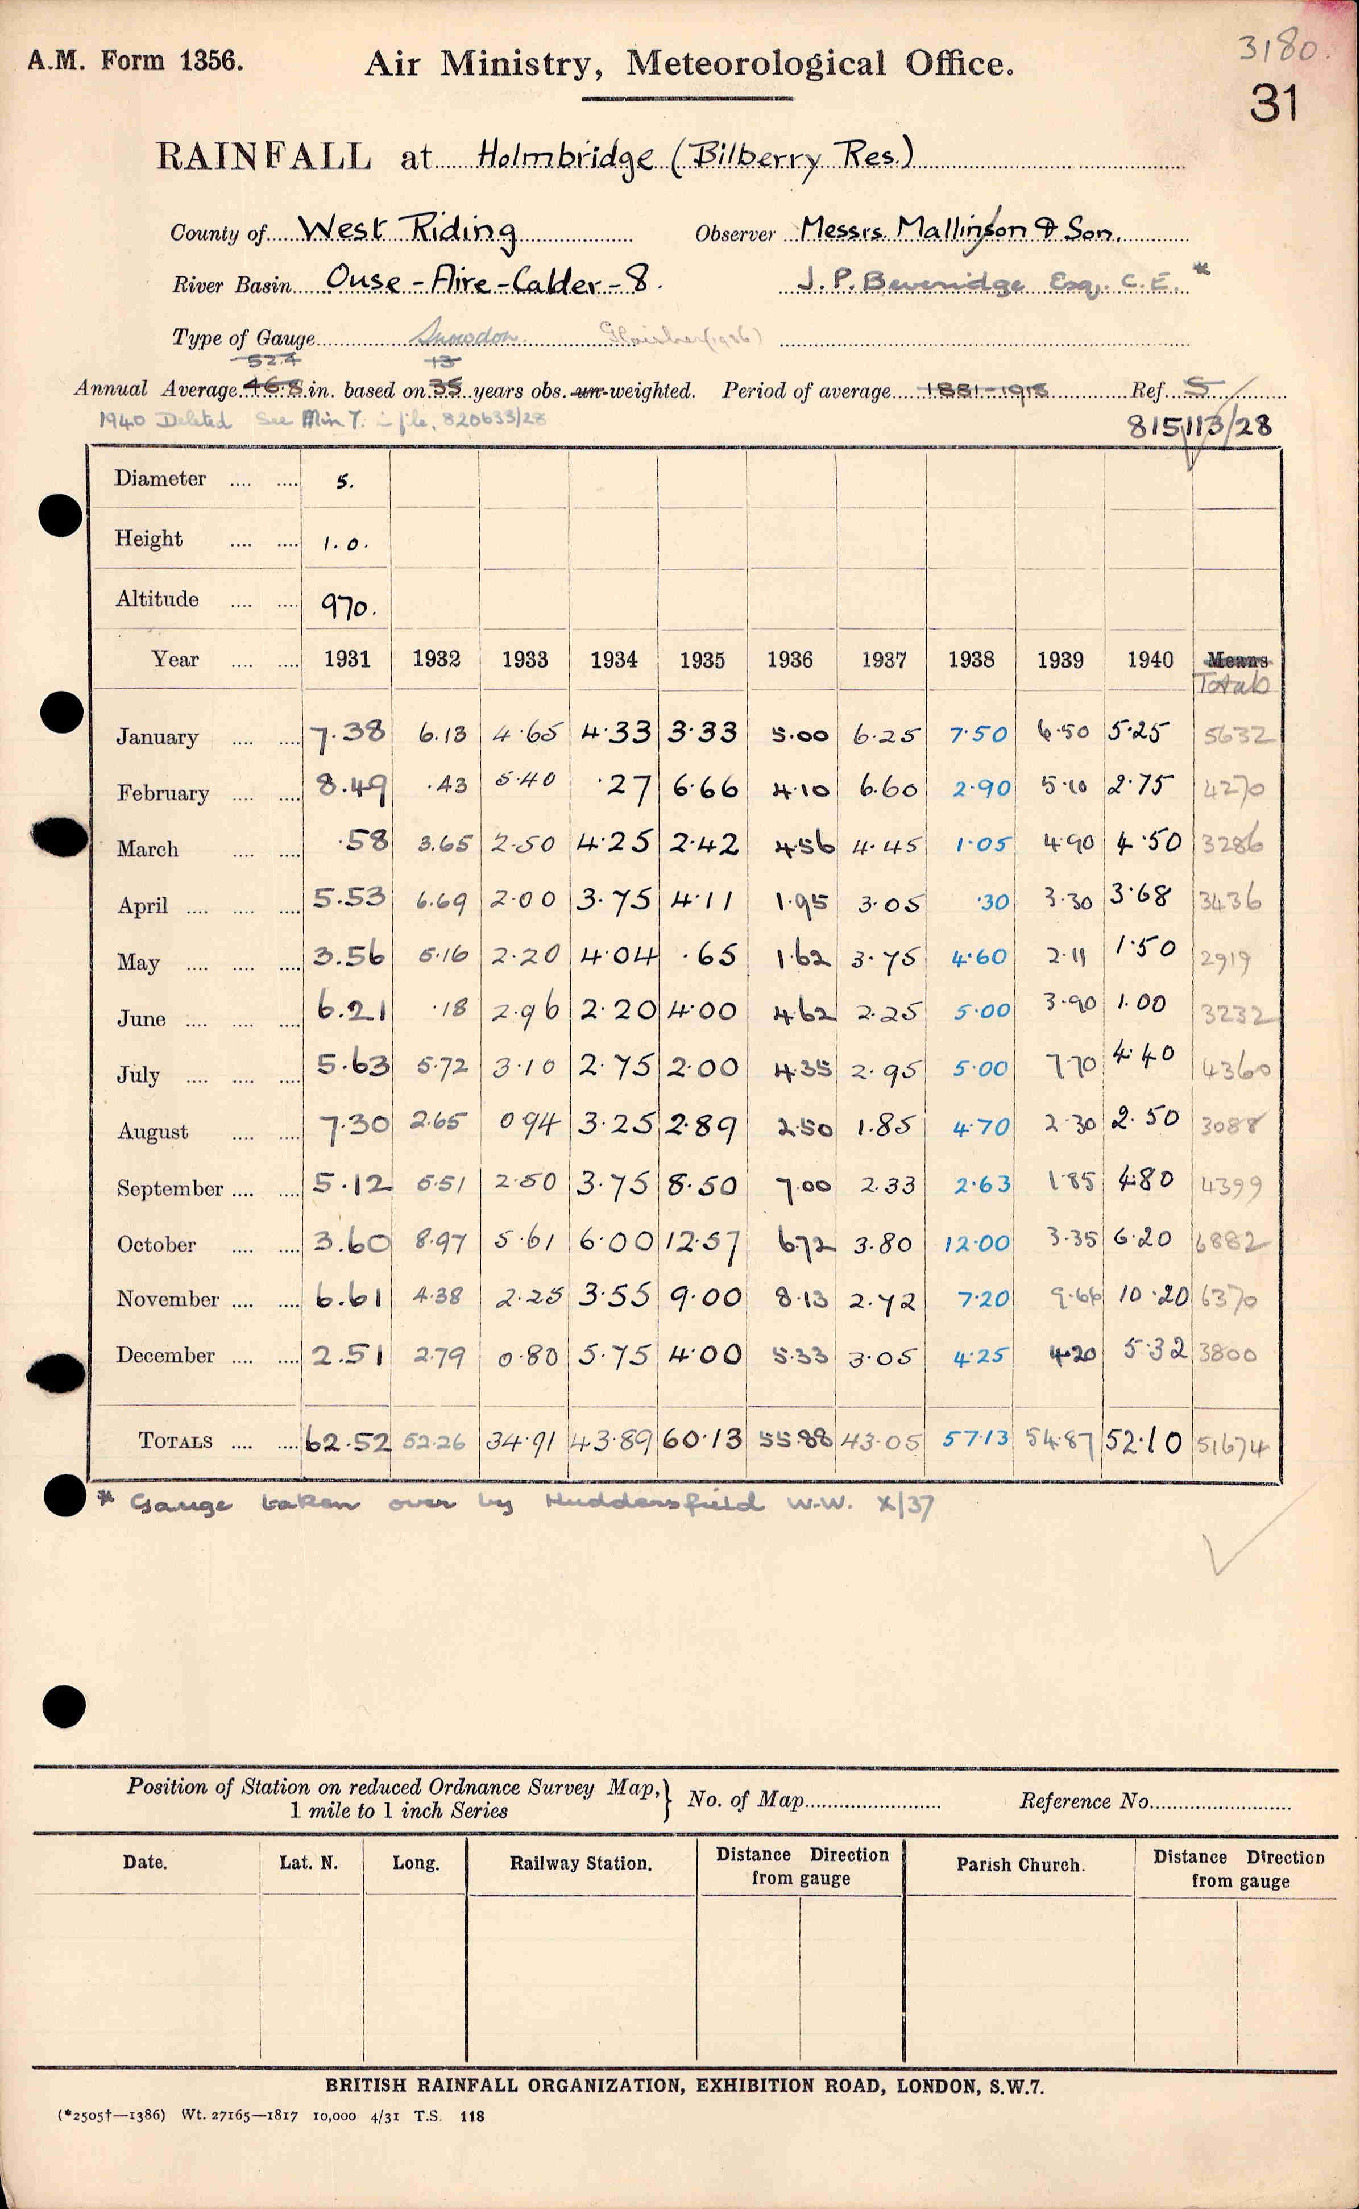 3180.
A.M. Form 1356. Air Ministry, Meteorological Office.
31
RAINFALL at Holmbridge (Bilberry Res.)
County of West Riding Observer Messrs. Mallinson & Son.
River Basin Ouse-Aire-Calder-8. J. P. Beveridge Esq. C.E. *
Type of Gauge Snowdon Glaisher (1936)
52.4 13
Annual Average 46.8 in. based on 35 years obs. un-weighted. Period of average 1881-1918 Ref. S
1940 Deleted See Min 7. file, 820633/28
815113/28
Diameter 5.
Height 1.0.
Altitude 970.
Year 1931 1932 1933 1934 1935 1936 1937 1938 1939 1940 Means
Totals
January 7.38 6.13 4.65 4.33 3.33 5.00 6.25 7.50 6.50 5.25 5632
February 8.49 .43 5.40 .27 6.66 4.10 6.60 2.90 5.10 2.75 4270
March .58 3.65 2.50 4.25 2.42 4.56 4.45 1.05 4.90 4.50 3286
April 5.53 6.69 2.00 3.75 4.11 1.95 3.05 .30 3.30 3.68 3436
May 3.56 5.16 2.20 4.04 .65 1.62 3.75 4.60 2.11 1.50 2919
June 6.21 .18 2.96 2.20 4.00 4.62 2.25 5.00 3.90 1.00 3232
July 5.63 5.72 3.10 2.75 2.00 4.35 2.95 5.00 7.70 4.40 4360
August 7.30 2.65 0.94 3.25 2.89 2.50 1.85 4.70 2.30 2.50 3088
September 5.12 5.51 2.50 3.75 8.50 7.00 2.33 2.63 1.85 4.80 4399
October 3.60 8.97 5.61 6.00 12.57 6.72 3.80 12.00 3.35 6.20 6882
November 6.61 4.38 2.25 3.55 9.00 8.13 2.72 7.20 9.66 10.20 6370
December 2.51 2.79 0.80 5.75 4.00 5.33 3.05 4.25 4.20 5.32 3800
TOTALS 62.52 52.26 34.91 43.89 60.13 55.88 43.05 57.13 54.87 52.10 51674
* Gauge taken over by Huddersfield W.W. X/37
Position of Station on reduced Ordnance Survey Map, } No. of Map Reference No.
1 mile to 1 inch Series
Date. Lat. N. Long. Railway Station. Distance Direction from gauge Parish Church. Distance Direction from gauge
BRITISH RAINFALL ORGANIZATION, EXHIBITION ROAD, LONDON, S.W.7.
(*2505†—1386) Wt. 27165—1817 10,000 4/31 T.S. 118